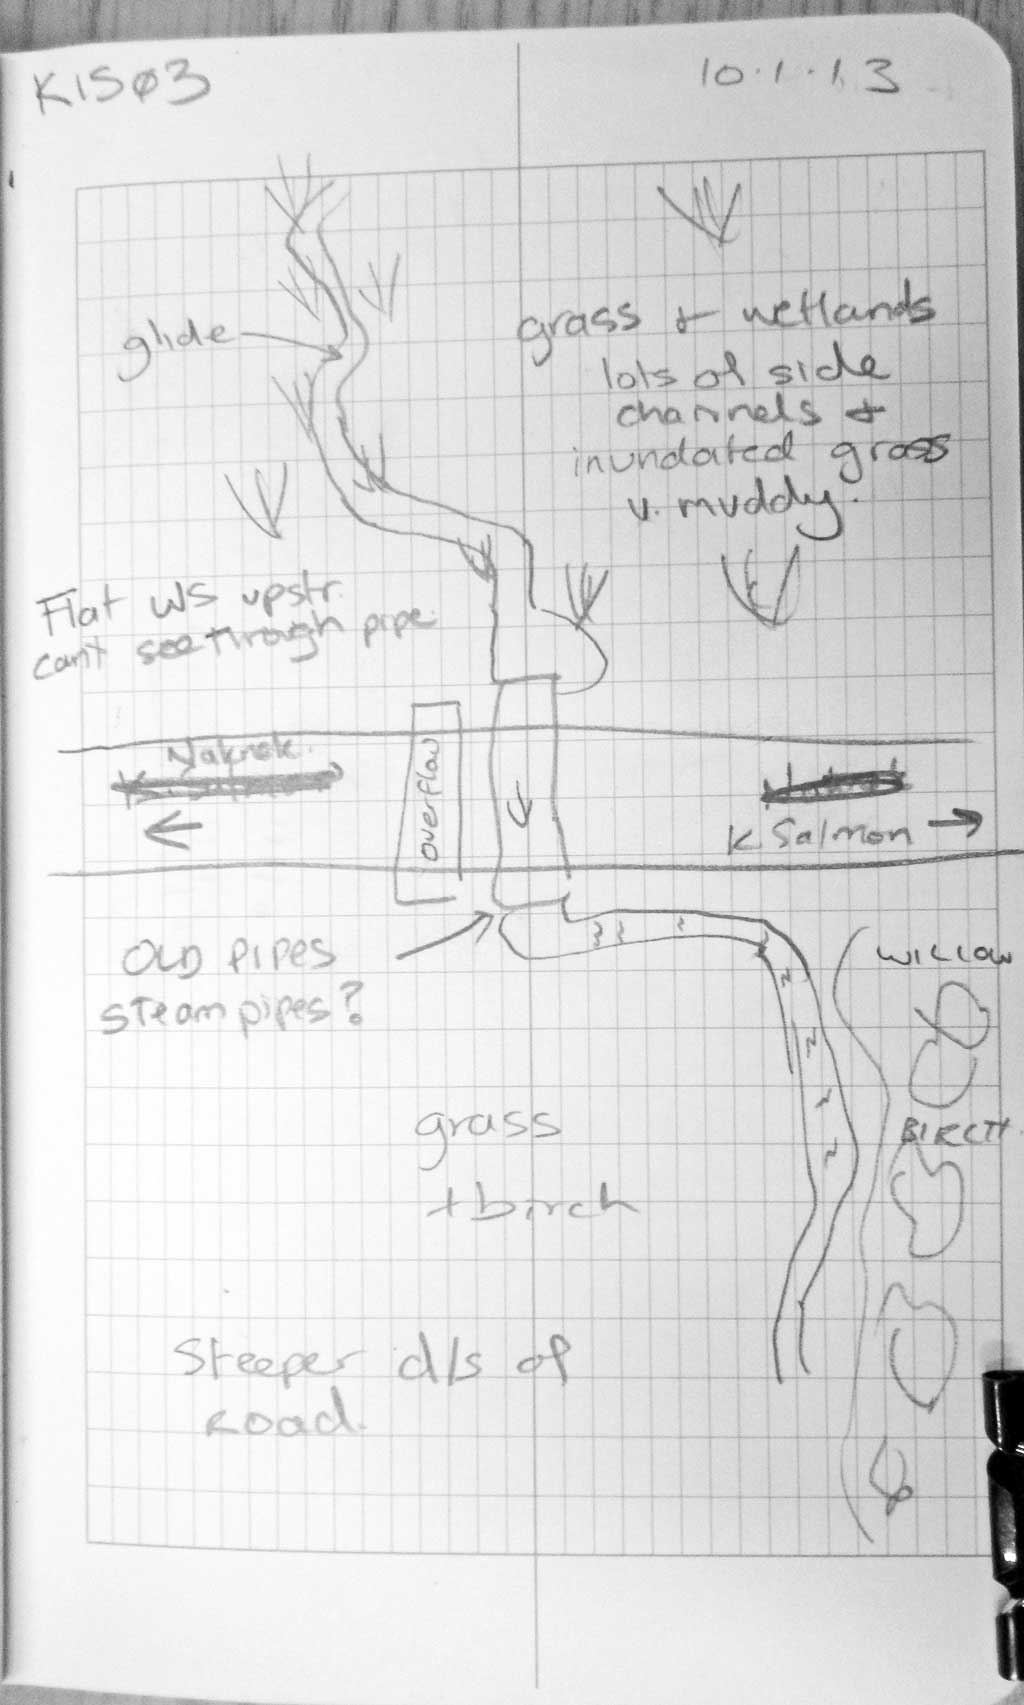 K1SØ3
10.1.13
glide
grass + wetlands
lots of side
channels +
inundated grass
v. muddy.
Flat WS upstr.
can't see through pipe.
Naknek.
overflow
K Salmon
OLD PIPES
STEAM pipes?
WILLOW
BIRCH.
grass
+ birch
Steeper d/s of
road.